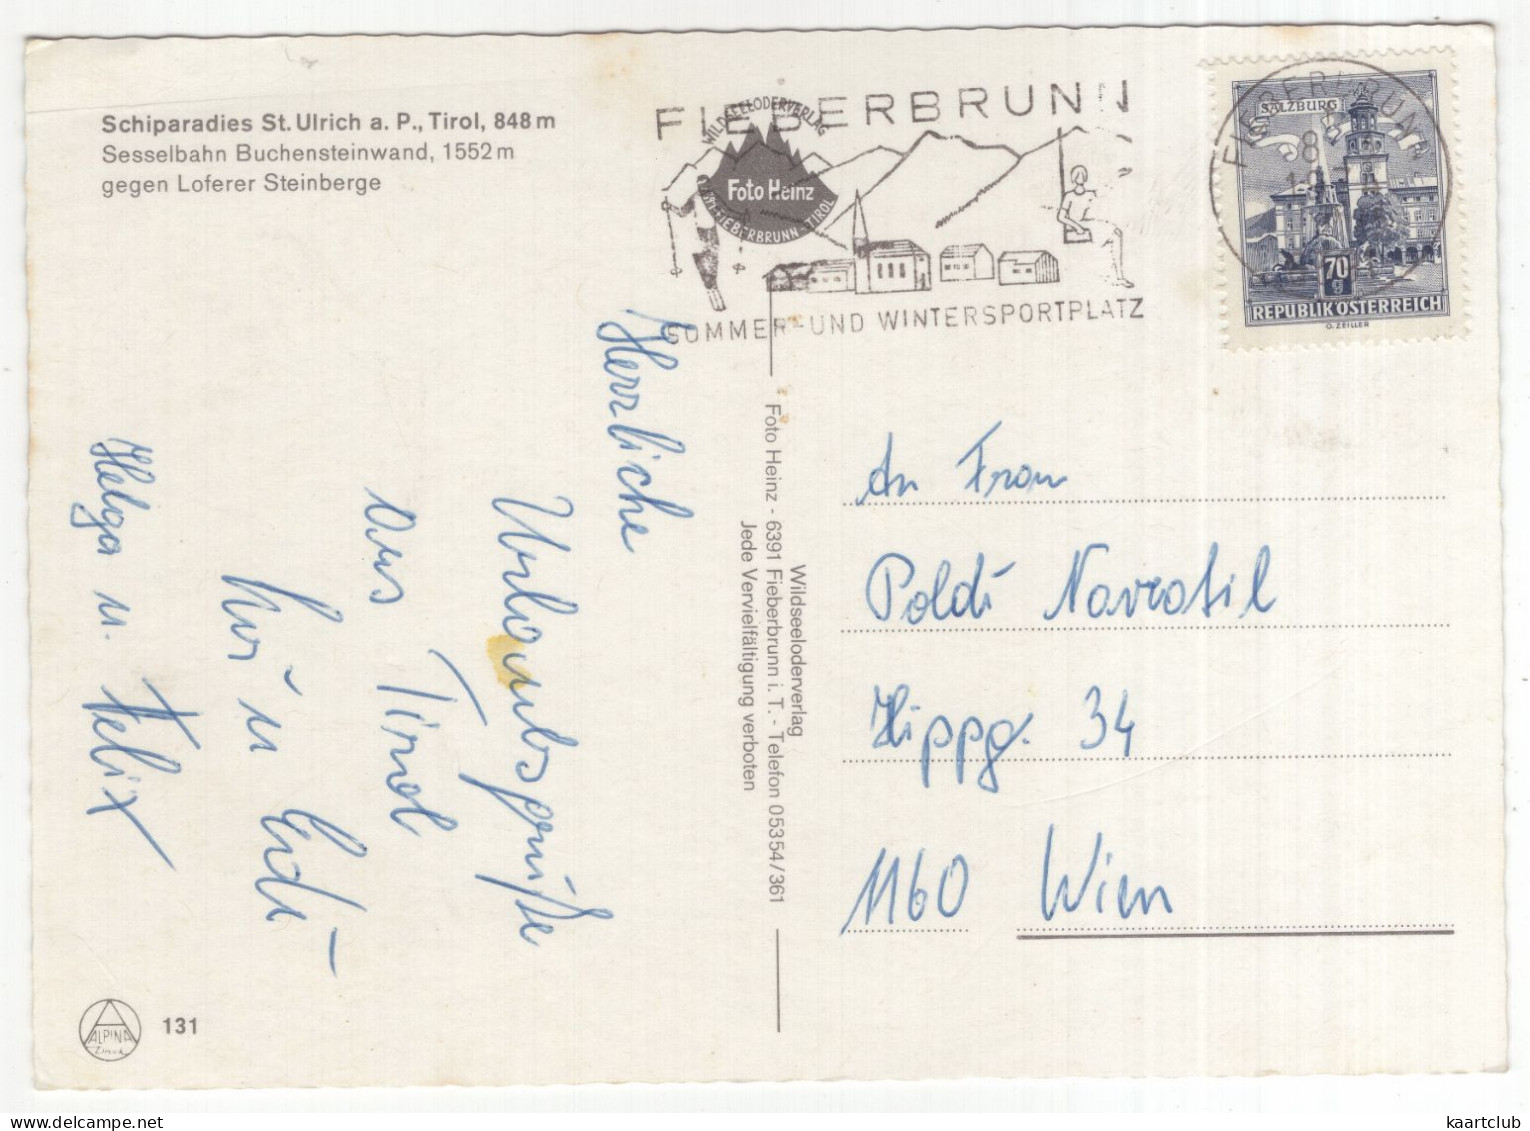 Schiparadies St. Ulrich a. P., Tirol, 848 m
Sesselbahn Buchensteinwand, 1552 m
gegen Loferer Steinberge
FIEBERBRUNN
WILDSEELODERVERLAG
Foto Heinz
FIEBERBRUNN-TIROL
SOMMER- UND WINTERSPORTPLATZ
FIEBERBRUNN
SALZBURG
70
g
REPUBLIK ÖSTERREICH
O. ZEILLER
Herrliche
Urlaubsgrüße
aus Tirol
Edi
Helga u. Felix
Wildseeloderverlag
Foto Heinz - 6391 Fieberbrunn i. T. - Telefon 05354/361
Jede Vervielfältigung verboten
An Frau
Poldi Navratil
Hippg. 34
1160 Wien
ALPINA
Druck
131
kaartclub